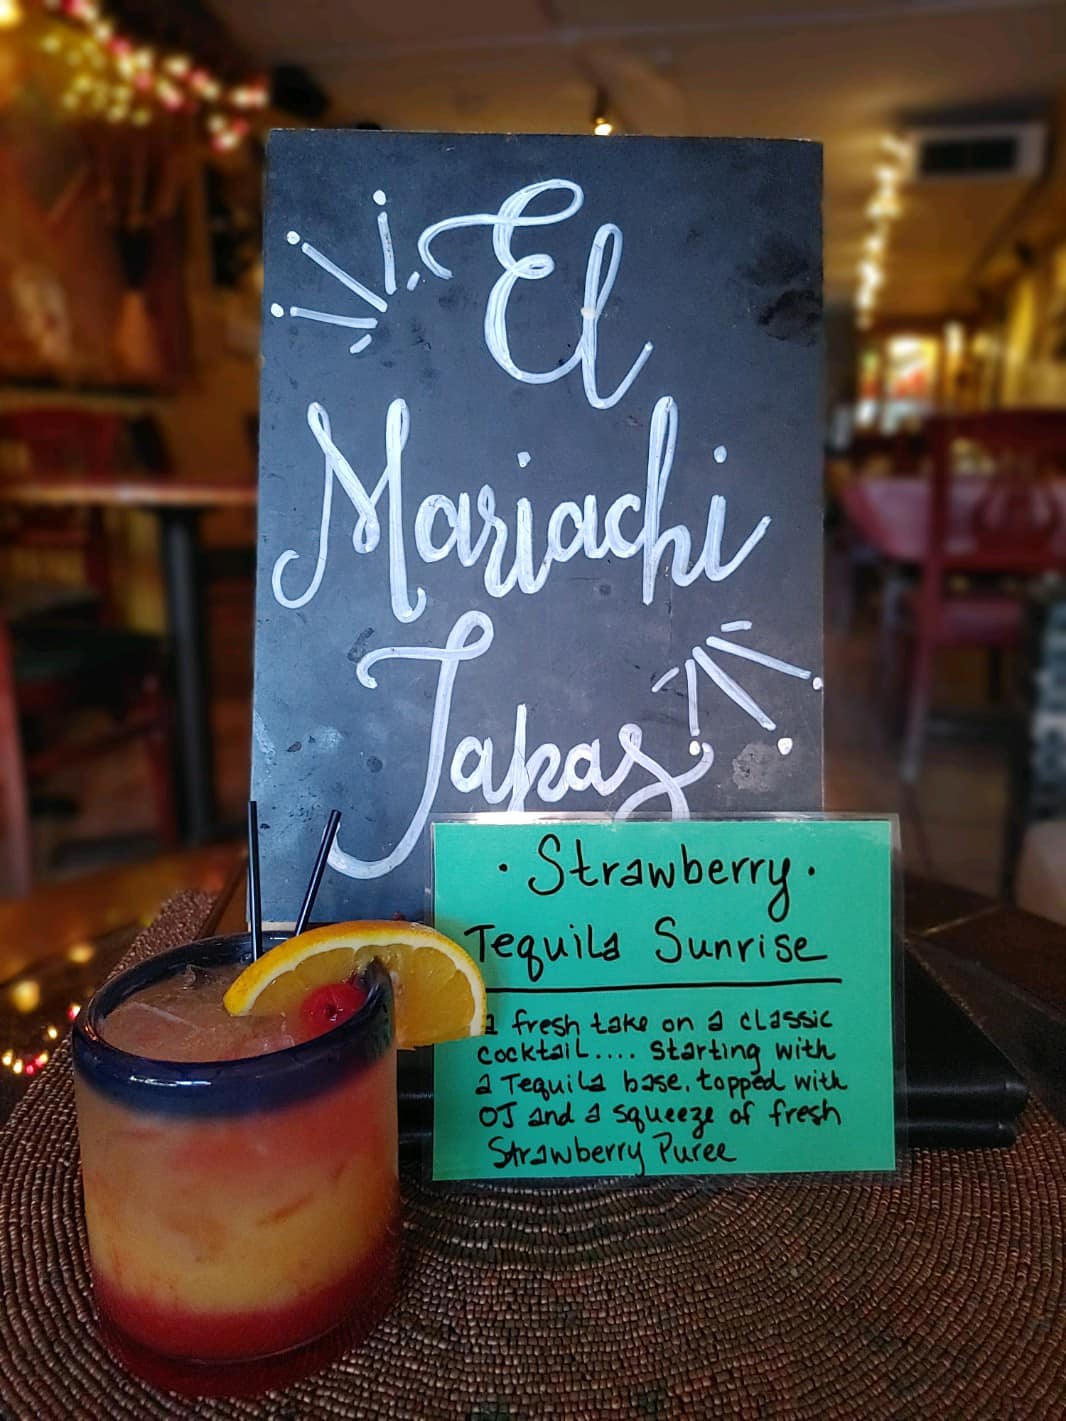 El
Mariachi
Tapas
· Strawberry ·
Tequila Sunrise
a fresh take on a classic
cocktail.... Starting with
a Tequila base, topped with
OJ and a squeeze of fresh
Strawberry Puree